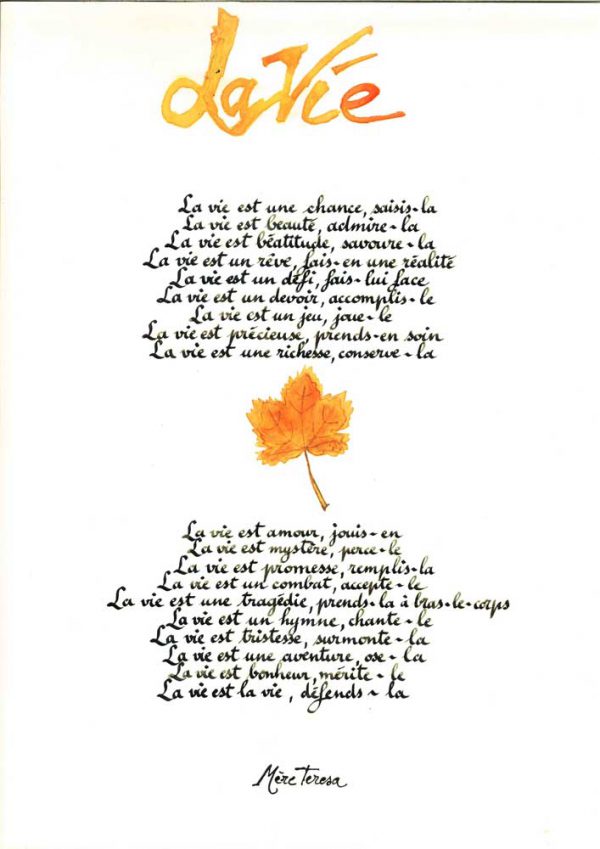 La Vie
La vie est une chance, saisis-la
La vie est beauté, admire-la
La vie est béatitude, savoure-la
La vie est un rêve, fais-en une réalité
La vie est un défi, fais-lui face
La vie est un devoir, accomplis-le
La vie est un jeu, joue-le
La vie est précieuse, prends-en soin
La vie est une richesse, conserve-la
La vie est amour, jouis-en
La vie est mystère, perce-le
La vie est promesse, remplis-la
La vie est un combat, accepte-le
La vie est une tragédie, prends-la à bras-le-corps
La vie est un hymne, chante-le
La vie est tristesse, surmonte-la
La vie est une aventure, ose-la
La vie est bonheur, mérite-le
La vie est la vie, défends-la
Mère Teresa